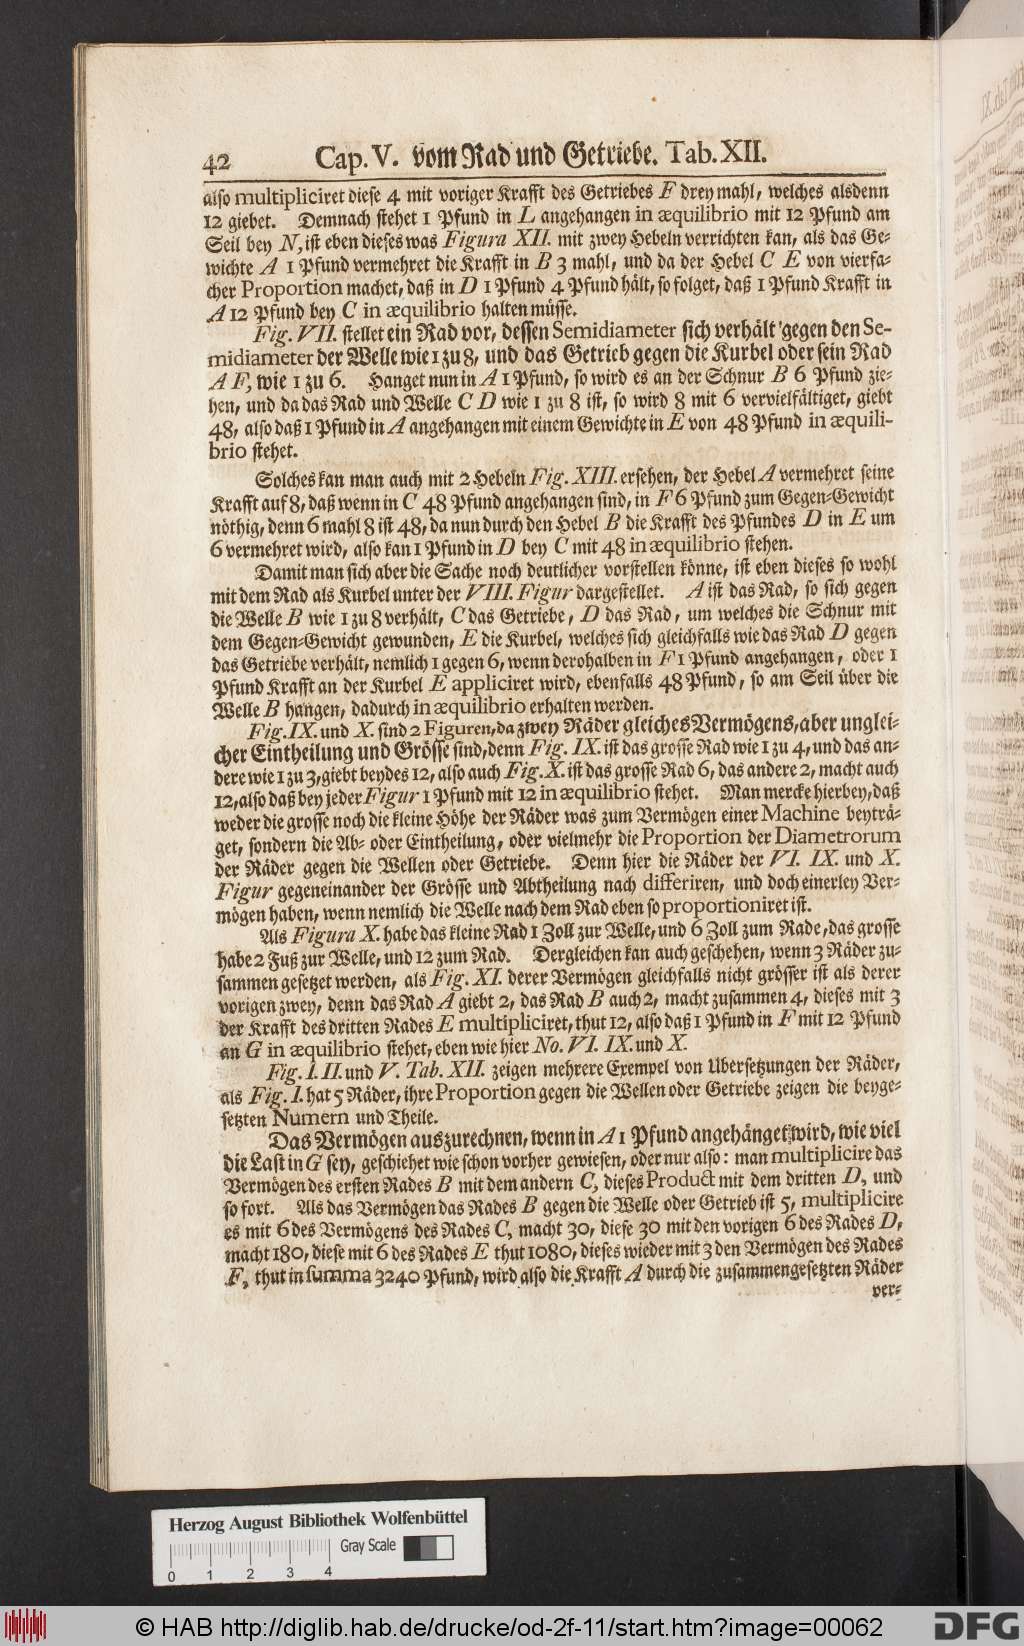 42 Cap. V. vom Rad und Getriebe. Tab. XII.
also multipliciret diese 4 mit voriger Krafft des Getriebes F drey mahl, welches alsdenn
12 giebet. Demnach stehet 1 Pfund in L angehangen in æquilibrio mit 12 Pfund am
Seil bey N, ist eben dieses was Figura XII. mit zwey Hebeln verrichten kan, als das Ge-
wichte A 1 Pfund vermehret die Krafft in B 3 mahl, und da der Hebel C E von vierfa-
cher Proportion machet, daß in D 1 Pfund 4 Pfund hält, so folget, daß 1 Pfund Krafft in
A 12 Pfund bey C in æquilibrio halten müsse.
Fig. VII. stellet ein Rad vor, dessen Semidiameter sich verhält gegen den Se-
midiameter der Welle wie 1 zu 8, und das Getrieb gegen die Kurbel oder sein Rad
A F, wie 1 zu 6. Hanget nun in A 1 Pfund, so wird es an der Schnur B 6 Pfund zie-
hen, und da das Rad und Welle C D wie 1 zu 8 ist, so wird 8 mit 6 vervielfältiget, giebt
48, also daß 1 Pfund in A angehangen mit einem Gewichte in E von 48 Pfund in æquili-
brio stehet.
Solches kan man auch mit 2 Hebeln Fig. XIII. ersehen, der Hebel A vermehret seine
Krafft auf 8, daß wenn in C 48 Pfund angehangen sind, in F 6 Pfund zum Gegen-Gewicht
nöthig, denn 6 mahl 8 ist 48, da nun durch den Hebel B die Krafft des Pfundes D in E um
6 vermehret wird, also kan 1 Pfund in D bey C mit 48 in æquilibrio stehen.
Damit man sich aber die Sache noch deutlicher vorstellen könne, ist eben dieses so wohl
mit dem Rad als Kurbel unter der VIII. Figur dargestellet. A ist das Rad, so sich gegen
die Welle B wie 1 zu 8 verhält, C das Getriebe, D das Rad, um welches die Schnur mit
dem Gegen-Gewicht gewunden, E die Kurbel, welches sich gleichfalls wie das Rad D gegen
das Getriebe verhält, nemlich 1 gegen 6, wenn derohalben in F 1 Pfund angehangen, oder 1
Pfund Krafft an der Kurbel E appliciret wird, ebenfalls 48 Pfund, so am Seil über die
Welle B hangen, dadurch in æquilibrio erhalten werden.
Fig. IX. und X. sind 2 Figuren, da zwey Räder gleiches Vermögens, aber unglei-
cher Eintheilung und Grösse sind, denn Fig. IX. ist das grosse Rad wie 1 zu 4, und das an-
dere wie 1 zu 3, giebt beydes 12, also auch Fig. X. ist das grosse Rad 6, das andere 2, macht auch
12, also daß bey jeder Figur 1 Pfund mit 12 in æquilibrio stehet. Man mercke hierbey, daß
weder die grosse noch die kleine Höhe der Räder was zum Vermögen einer Machine beyträ-
get, sondern die Ab- oder Eintheilung, oder vielmehr die Proportion der Diametrorum
der Räder gegen die Wellen oder Getriebe. Denn hier die Räder der VI. IX. und X.
Figur gegeneinander der Grösse und Abtheilung nach differiren, und doch einerley Ver-
mögen haben, wenn nemlich die Welle nach dem Rad eben so proportioniret ist.
Als Figura X. habe das kleine Rad 1 Zoll zur Welle, und 6 Zoll zum Rade, das grosse
habe 2 Fuß zur Welle, und 12 zum Rad. Dergleichen kan auch geschehen, wenn 3 Räder zu-
sammen gesetzet werden, als Fig. XI. derer Vermögen gleichfalls nicht grösser ist als derer
vorigen zwey, denn das Rad A giebt 2, das Rad B auch 2, macht zusammen 4, dieses mit 3
der Krafft des dritten Rades E multipliciret, thut 12, also daß 1 Pfund in F mit 12 Pfund
an G in æquilibrio stehet, eben wie hier No. VI. IX. und X.
Fig. I. II. und V. Tab. XII. zeigen mehrere Exempel von Ubersetzungen der Räder,
als Fig. I. hat 5 Räder, ihre Proportion gegen die Wellen oder Getriebe zeigen die beyge-
setzten Numern und Theile.
Das Vermögen auszurechnen, wenn in A 1 Pfund angehänget wird, wie viel
die Last in G sey, geschiehet wie schon vorher gewiesen, oder nur also: man multiplicire das
Vermögen des ersten Rades B mit dem andern C, dieses Product mit dem dritten D, und
so fort. Als das Vermögen das Rades B gegen die Welle oder Getrieb ist 5, multiplicire
es mit 6 des Vermögens des Rades C, macht 30, diese 30 mit den vorigen 6 des Rades D,
macht 180, diese mit 6 des Rades E thut 1080, dieses wieder mit 3 den Vermögen des Rades
F, thut in summa 3240 Pfund, wird also die Krafft A durch die zusammengesetzten Räder
ver-
Herzog August Bibliothek Wolfenbüttel
Gray Scale
0 1 2 3 4
© HAB http://diglib.hab.de/drucke/od-2f-11/start.htm?image=00062
DFG